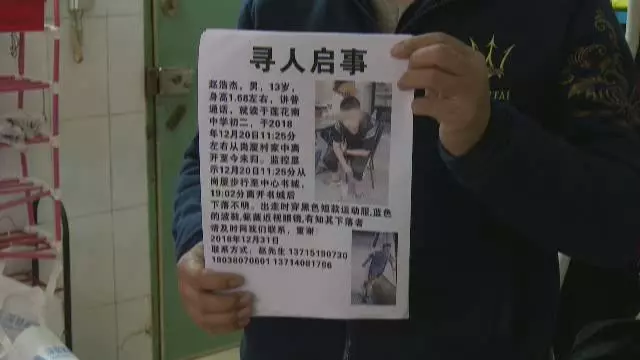 寻人启事
赵浩杰，男，13岁，
身高1.68左右，讲普
通话，就读于莲花南
中学初二，于2018
年12月20日11:25分
左右从岗厦村家中离
开至今未归。监控显
示12月20日11:25分从
岗厦步行至中心书城，
19:02分离开书城后
下落不明。出走时穿黑色短款运动服,蓝色
的波鞋,佩戴近视眼镜,有知其下落者
请及时同我们联系，重谢
2018年12月31日
联系方式：赵先生 13715190730
18038070601 13714081766
TAI